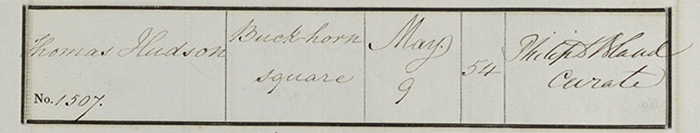 Thomas Hudson
No. 1507.
Buckhorn
square
May.
9
54
Philip D Bland
Curate